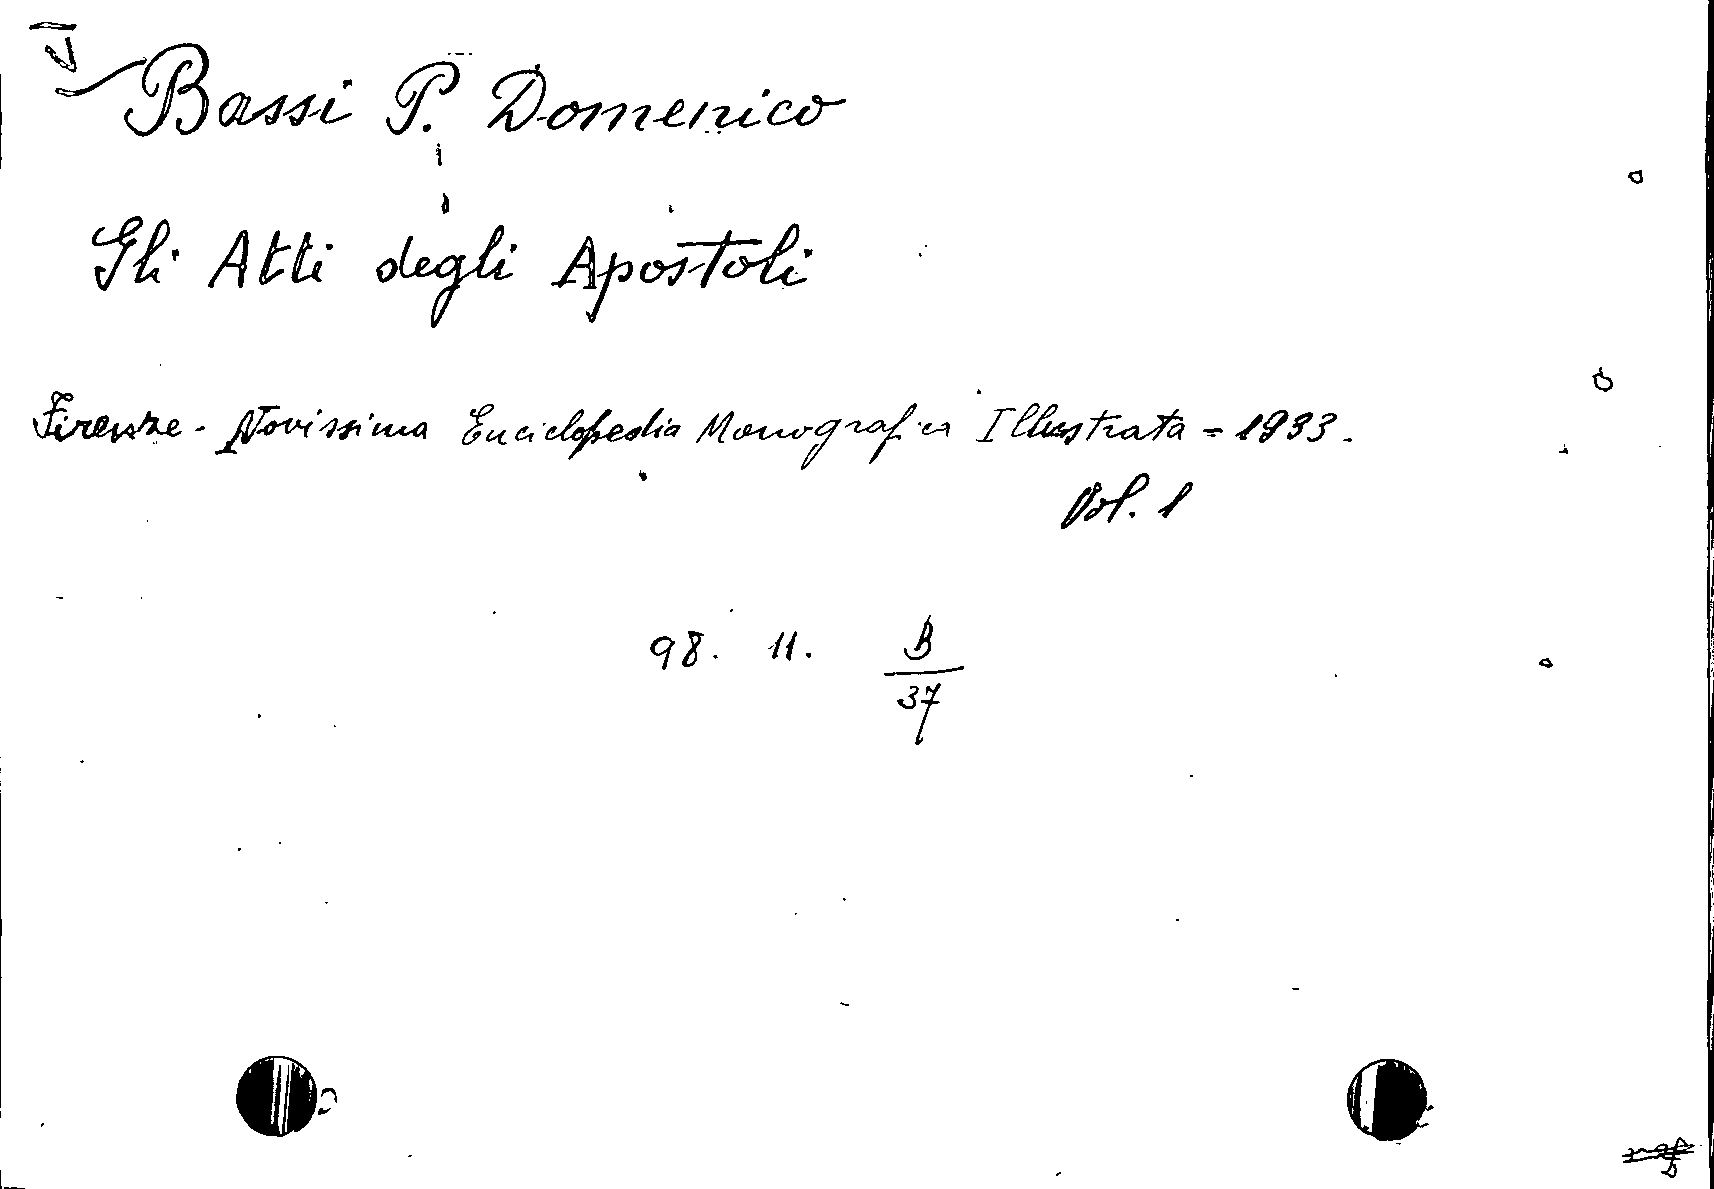 Bassi P. Domenico
Gli Atti degli Apostoli
Firenze - Novissima Enciclopedia Monografica Illustrata = 1933.
Vol. 1
98. 11. B
37